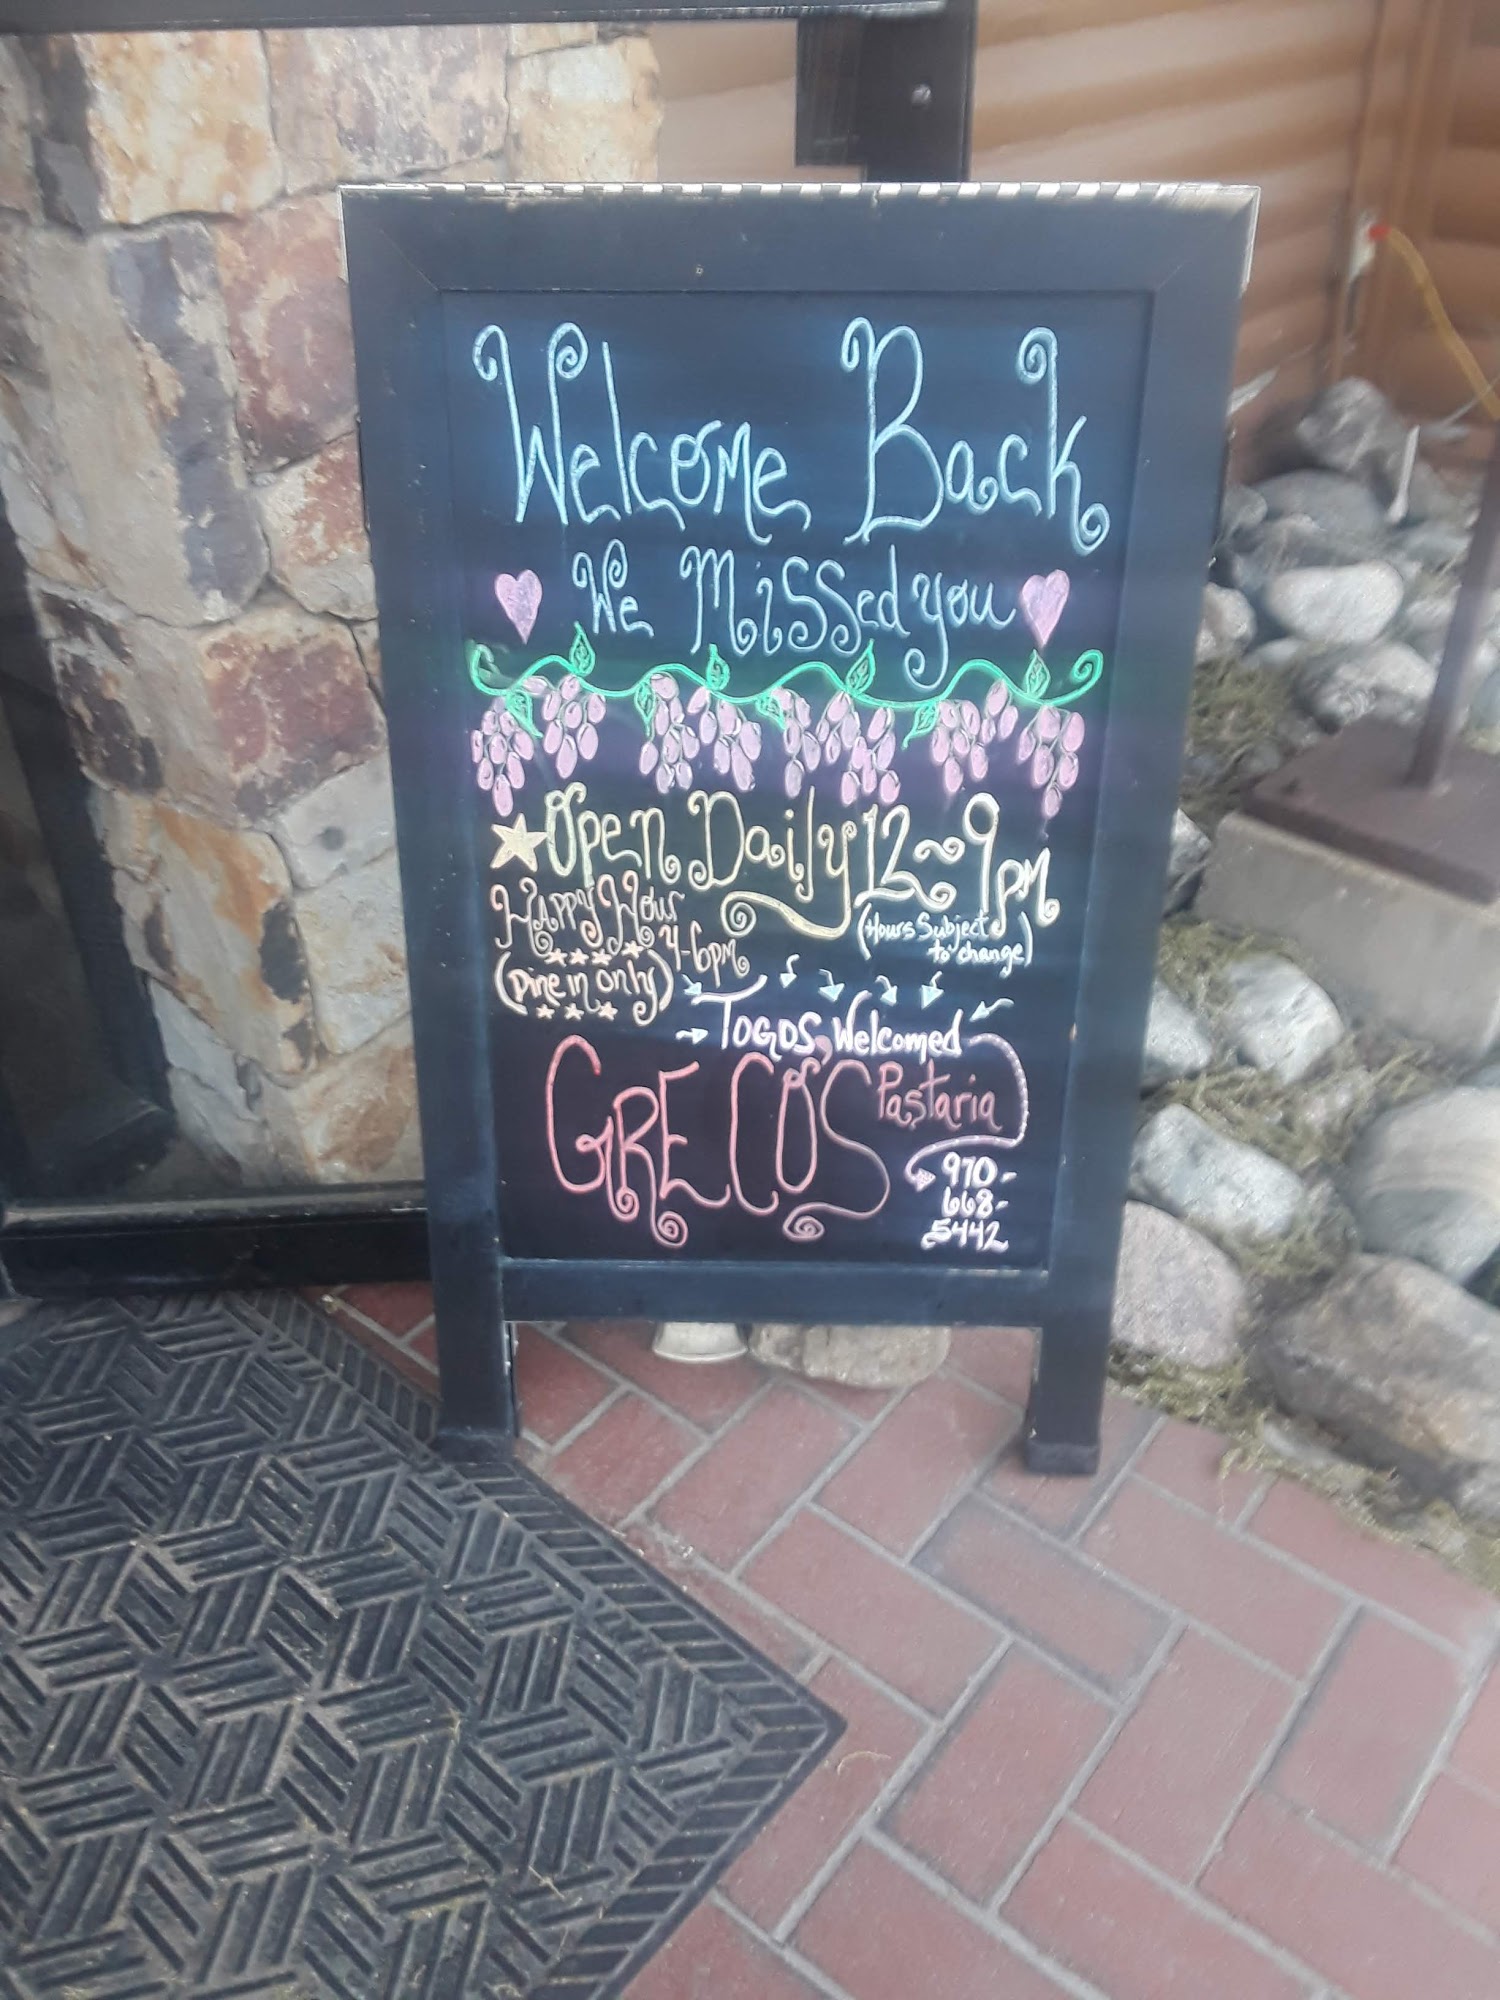 Welcome Back
We Missed you
Open Daily 12~9pm
(Hours Subject
to change)
Happy Hour
4-6pm
(Dine in only)
TOGOS Welcomed
GRECO'S Pastaria
970-
668-
5442